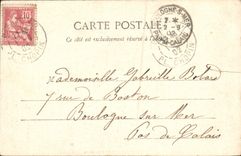 CARTE POSTALE
Ce côté est exclusivement réservé à l'adresse
10
Mademoiselle Gabrielle
7 rue de Boston
Boulogne sur Mer
Pas de Calais